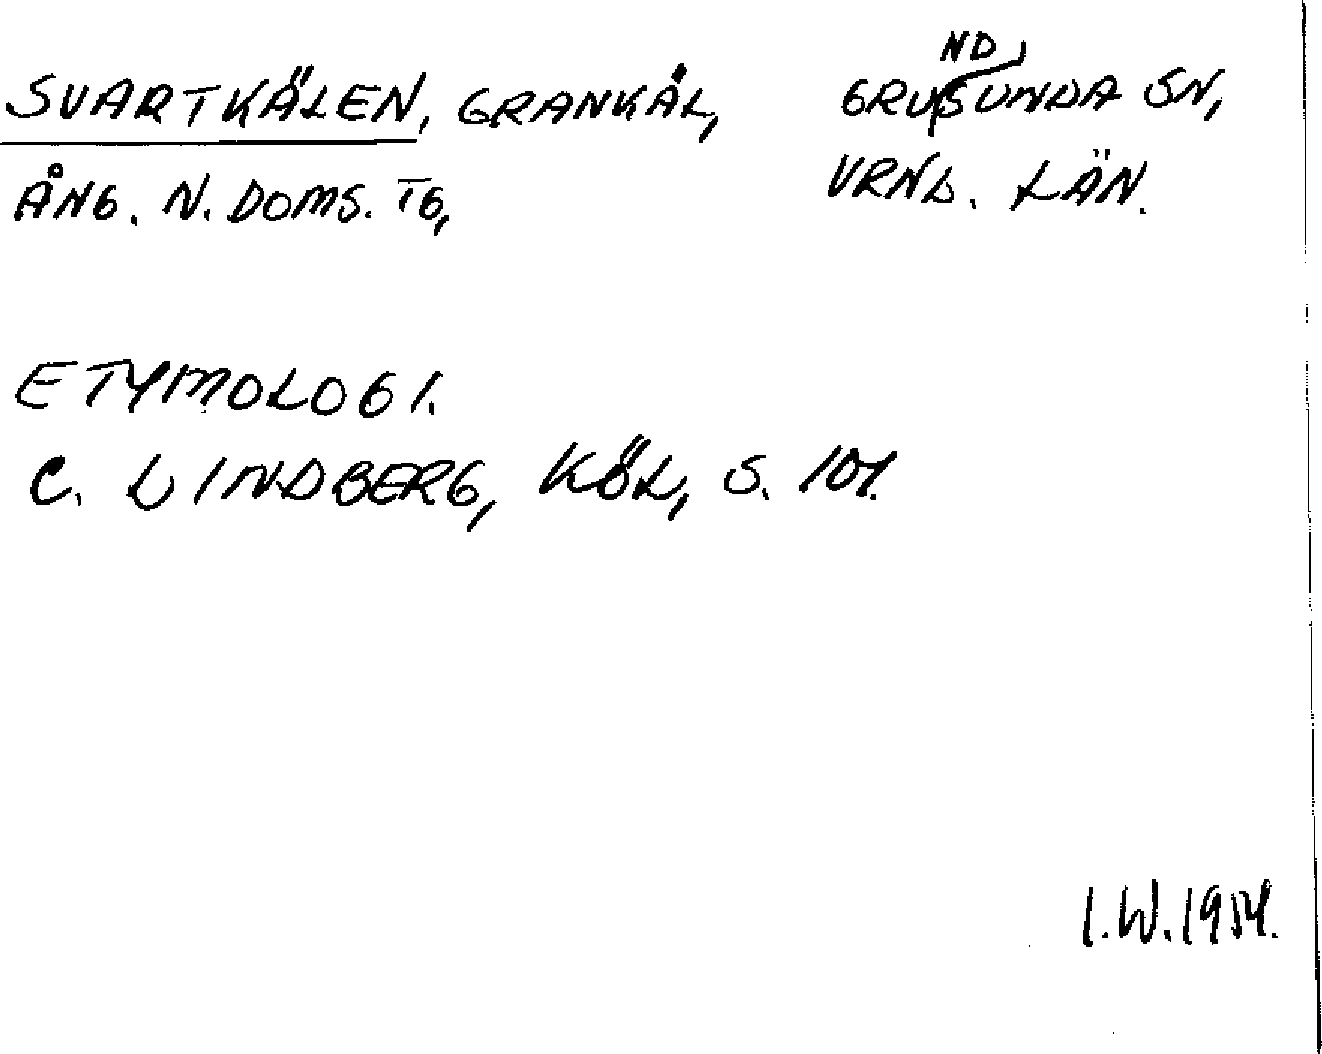 SVARTKÄLEN, GRANKÅL,
GRUNDSUNDA SN,
ÅNG. N. DOMS. TG,
VRNL. LÄN.
ETYMOLOGI.
C. LINDBERG, KÖL, S. 101.
I.W. 1954.